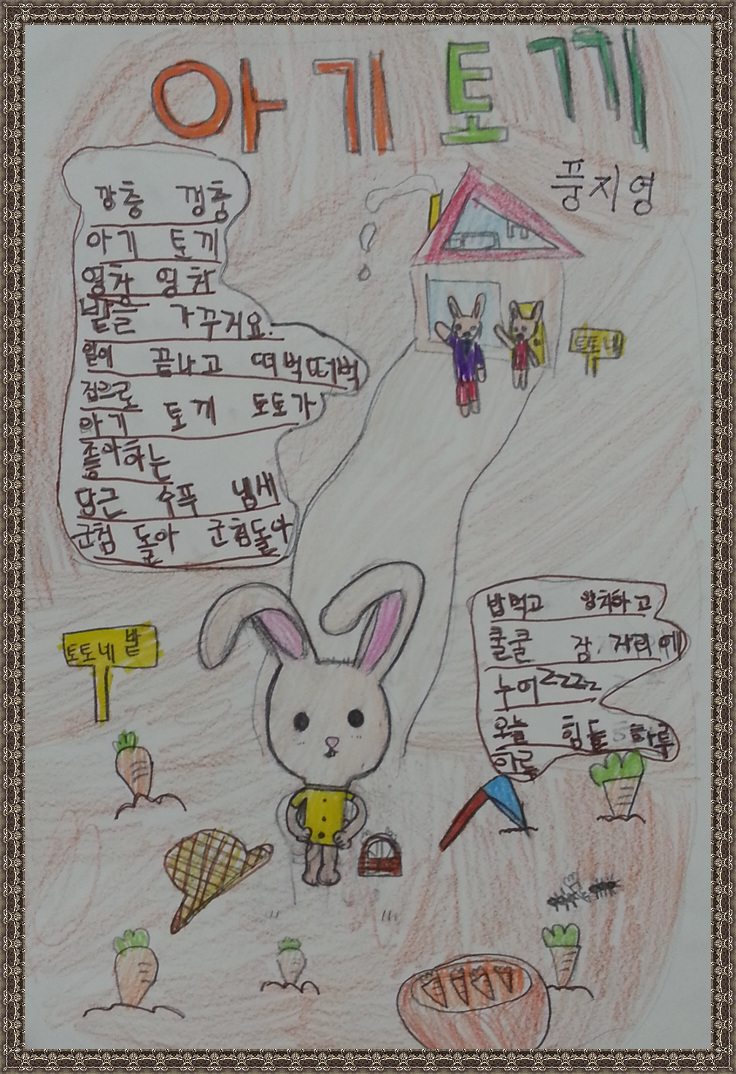 아기 토끼
풍지영
깡충 껑충
아기 토끼
영차 영차
밭을 가꾸거요.
일이 끝나고 떠벅떠벅
집으로
아기 토끼 토토가
좋아하는
당근 수푸 냄새
군침 돌아 군침돌아
토토네
토토네 밭
밥먹고 양치하고
쿨쿨 잠자리에
누어zzzz
오늘 힘들 하루